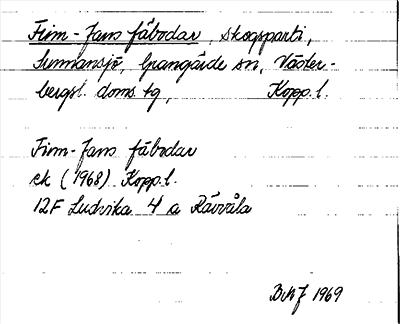 Finn-Jans fäbodar, skogsparti,
Sunnansjö, Grangärde sn, Väster-
bergsl. doms. tg, Kopp. l.
Finn-Jans fäbodar
ek (1968) Kopp. l.
12F Ludvika 4 a Rävvåla
1969